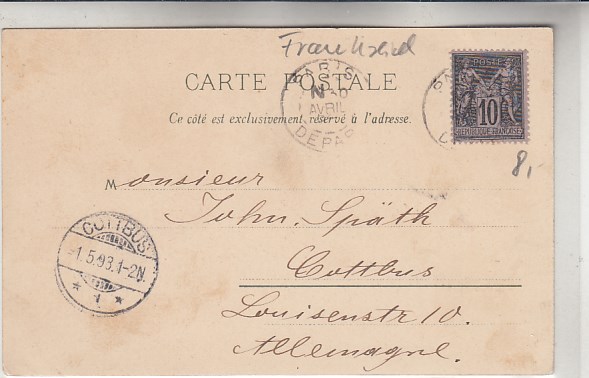 Frankreich
CARTE POSTALE
PARIS
30
AVRIL
DEPART
POSTES
10
REPUBLIQUE FRANÇAISE
Ce côté est exclusivement réservé à l'adresse.
8,-
Monsieur
John. Späth
COTTBUS
1.5.98.1-2N.
* 1 *
Cottbus
Louisenstr 10.
Allemagne.